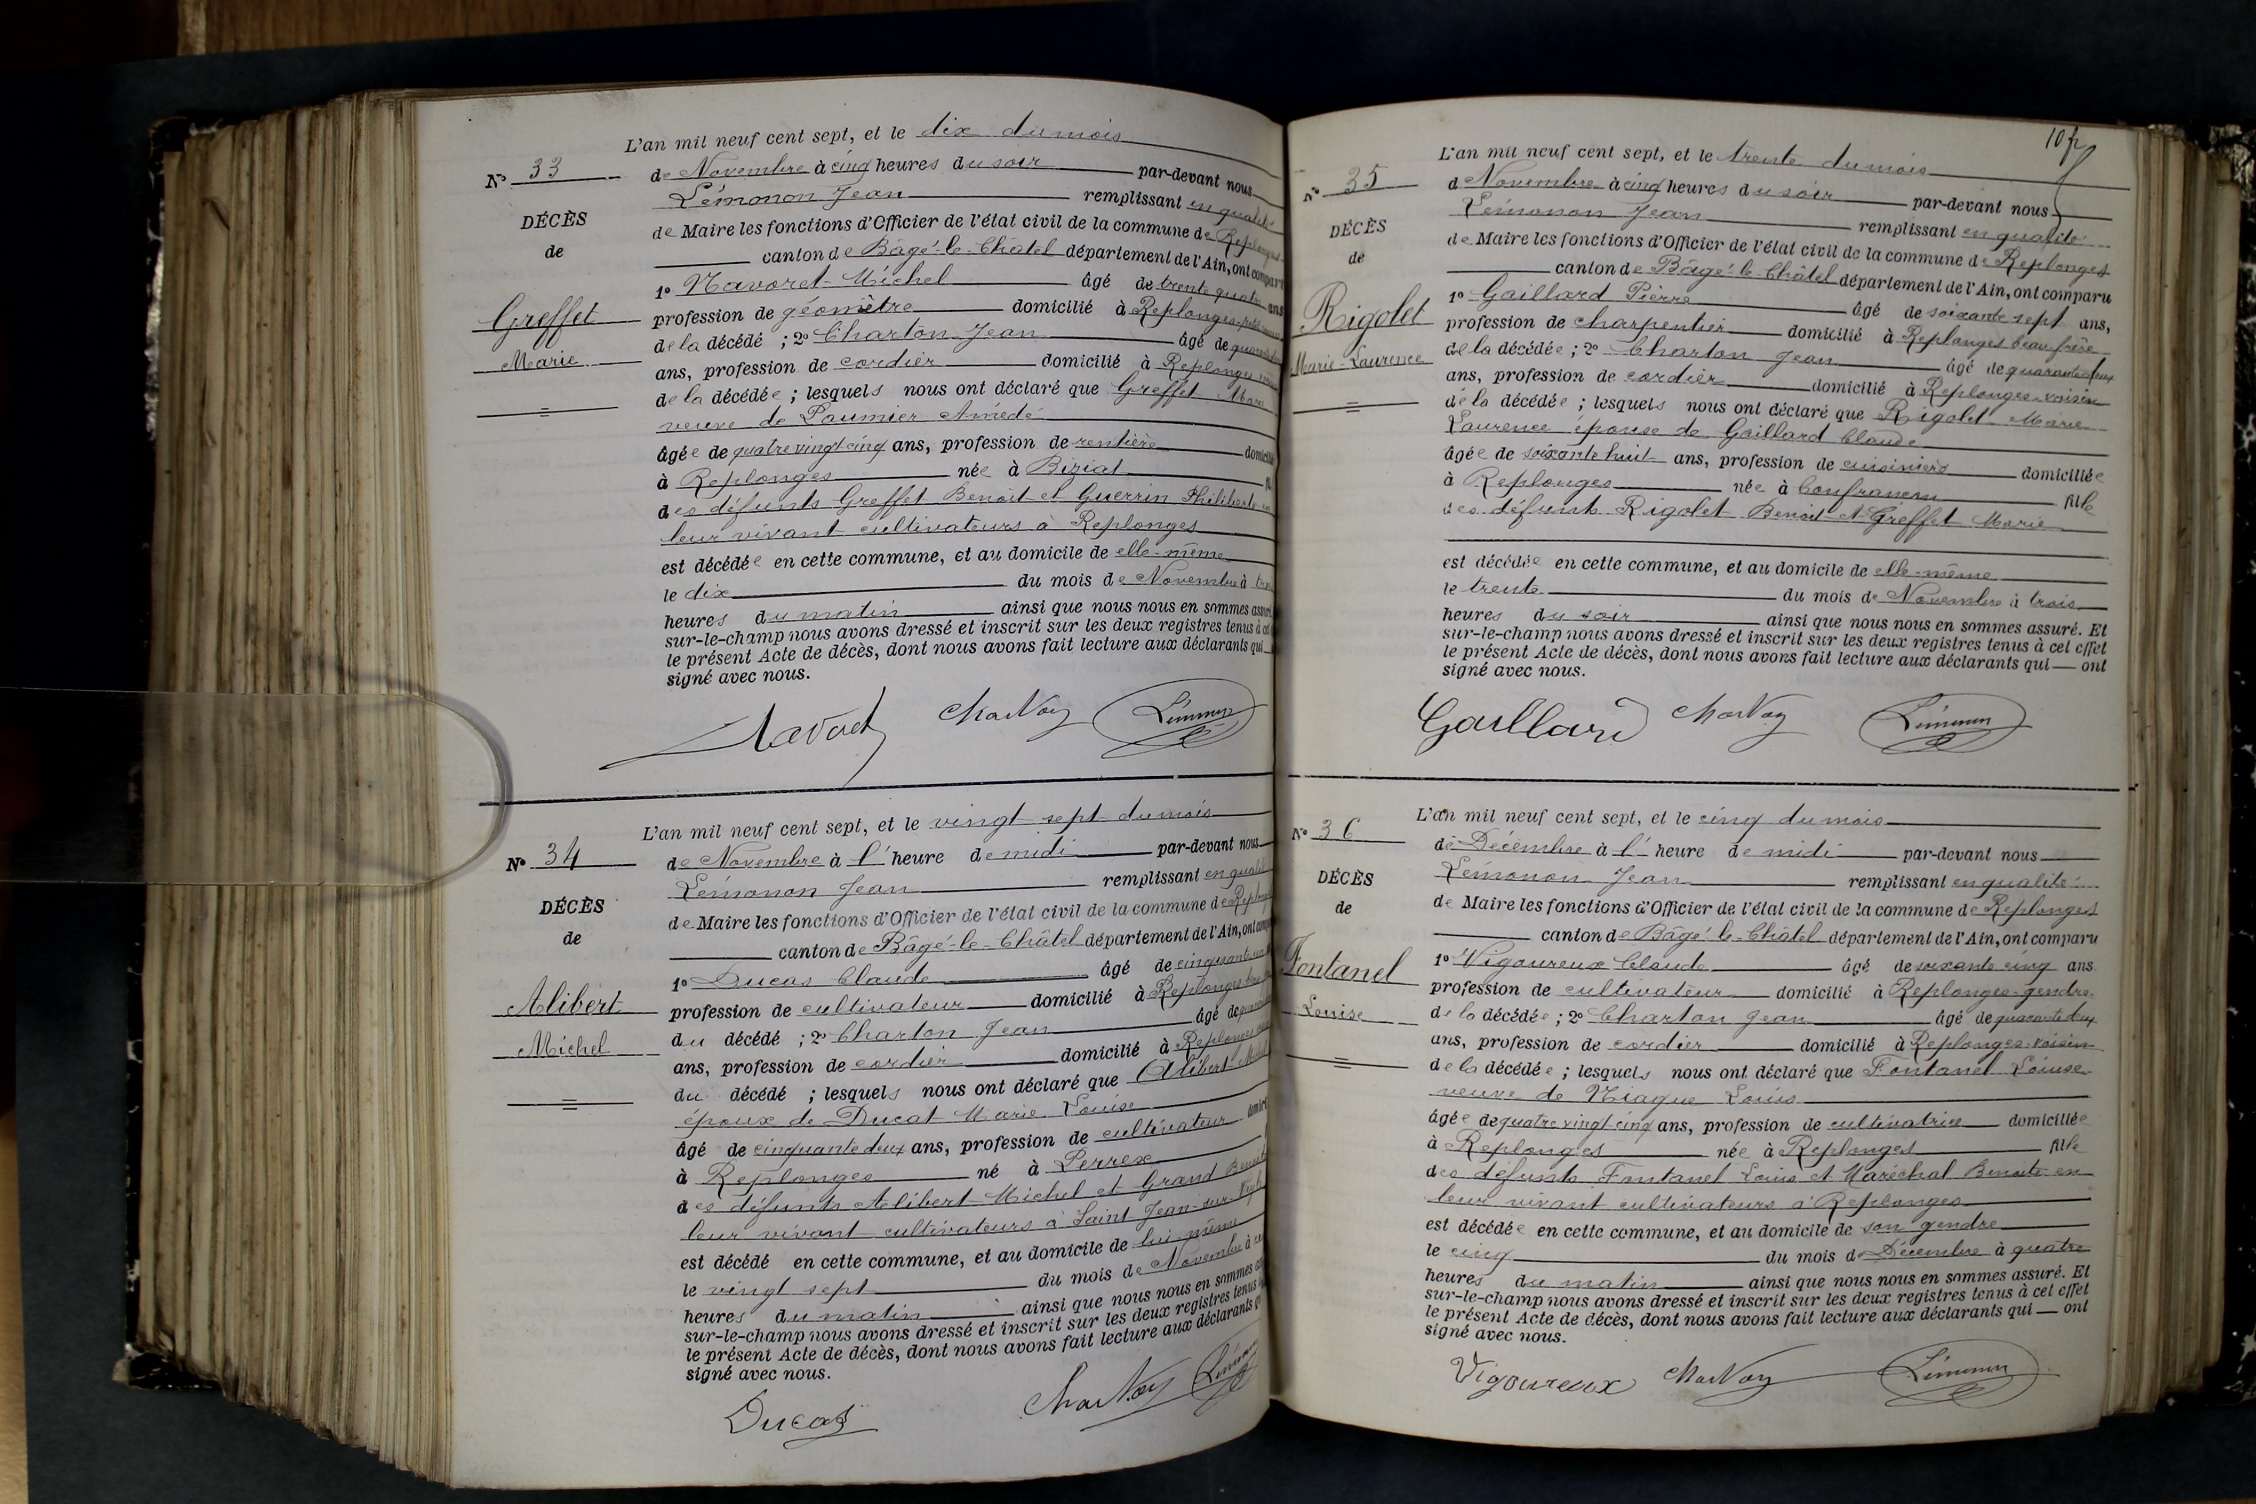 L'an mil neuf cent sept, et le dix du mois
N° 33
de Novembre à cinq heures du soir par-devant nous
Lémonon Jean remplissant en qualité
DÉCÈS
de Maire les fonctions d'Officier de l'état civil de la commune de Replonges
de
canton de Bâgé-le-Châtel département de l'Ain, ont comparu
1° Navoret Michel âgé de trente quatre ans
Greffet
profession de géomètre domicilié à Replonges
de la décédé ; 2° Charton Jean âgé de
Marie
ans, profession de cordier domicilié à Replonges
de la décédée ; lesquels nous ont déclaré que Greffet Marie
veuve de Paumier Amédé
âgée de quatre vingt cinq ans, profession de rentière domicilié
à Replonges née à Biziat
des défunts Greffet Benoit et Guerrin Philiberte en
leur vivant cultivateurs à Replonges
est décédée en cette commune, et au domicile de elle-même
le dix du mois de Novembre à
heures du matin ainsi que nous nous en sommes assuré
sur-le-champ nous avons dressé et inscrit sur les deux registres tenus à cet
le présent Acte de décès, dont nous avons fait lecture aux déclarants qui
signé avec nous.
Navoret Charton Lémonon
L'an mil neuf cent sept, et le vingt sept du mois
N° 34
de Novembre à l'heure de midi par-devant nous
Lémonon Jean remplissant en qualité
DÉCÈS
de Maire les fonctions d'Officier de l'état civil de la commune de Replonges
de
canton de Bâgé-le-Châtel département de l'Ain, ont
1° Ducas Claude âgé de cinquante
Alibert
profession de cultivateur domicilié à Replonges
du décédé ; 2° Charton Jean âgé de
Michel
ans, profession de cordier domicilié à Replonges
du décédé ; lesquels nous ont déclaré que Alibert Michel
époux de Ducat Marie Louise
âgé de cinquante deux ans, profession de cultivateur
à Replonges né à Perrex
des défunts Alibert Michel et Grand Benoite
leur vivant cultivateurs à Saint Jean-sur-Veyle
est décédé en cette commune, et au domicile de lui même
le vingt sept du mois de Novembre à
heures du matin ainsi que nous nous en sommes
sur-le-champ nous avons dressé et inscrit sur les deux registres tenus
le présent Acte de décès, dont nous avons fait lecture aux déclarants
signé avec nous.
Ducas Charton Lémonon
L'an mil neuf cent sept, et le trente du mois
N° 35
de Novembre à cinq heures du soir par-devant nous
Lémonon Jean remplissant en qualité
DÉCÈS
de Maire les fonctions d'Officier de l'état civil de la commune de Replonges
de
canton de Bâgé-le-Châtel département de l'Ain, ont comparu
1° Gaillard Pierre âgé de soixante sept ans,
Rigolet
profession de charpentier domicilié à Replonges beau-frère
de la décédée ; 2° Charton Jean âgé de quarante deux
Marie-Laurence
ans, profession de cordier domicilié à Replonges-voisin
de la décédée ; lesquels nous ont déclaré que Rigolet Marie
Laurence épouse de Gaillard Claude
âgée de soixante huit ans, profession de cuisinière domiciliée
à Replonges née à Confrancon fille
des défunts Rigolet Benoit et Greffet Marie
est décédée en cette commune, et au domicile de elle-même
le trente du mois de Novembre à trois
heures du soir ainsi que nous nous en sommes assuré. Et
sur-le-champ nous avons dressé et inscrit sur les deux registres tenus à cet effet
le présent Acte de décès, dont nous avons fait lecture aux déclarants qui ont
signé avec nous.
Gaillard Charton Lémonon
L'an mil neuf cent sept, et le cinq du mois
N° 36
de Décembre à l'heure de midi par-devant nous
Lémonon Jean remplissant en qualité
DÉCÈS
de Maire les fonctions d'Officier de l'état civil de la commune de Replonges
de
canton de Bâgé-le-Châtel département de l'Ain, ont comparu
1° Vigoureux Claude âgé de soixante cinq ans
Fontanel
profession de cultivateur domicilié à Replonges-gendre
de la décédée ; 2° Charton Jean âgé de quarante deux
Louise
ans, profession de cordier domicilié à Replonges-voisin
de la décédée ; lesquels nous ont déclaré que Fontanel Louise
veuve de Niague Louis
âgée de quatre vingt cinq ans, profession de cultivatrice domiciliée
à Replonges née à Replonges fille
des défunts Fontanel Louis et Maréchal Benoite en
leur vivant cultivateurs à Replonges
est décédée en cette commune, et au domicile de son gendre
le cinq du mois de Décembre à quatre
heures du matin ainsi que nous nous en sommes assuré. Et
sur-le-champ nous avons dressé et inscrit sur les deux registres tenus à cet effet
le présent Acte de décès, dont nous avons fait lecture aux déclarants qui ont
signé avec nous.
Vigoureux Charton Lémonon